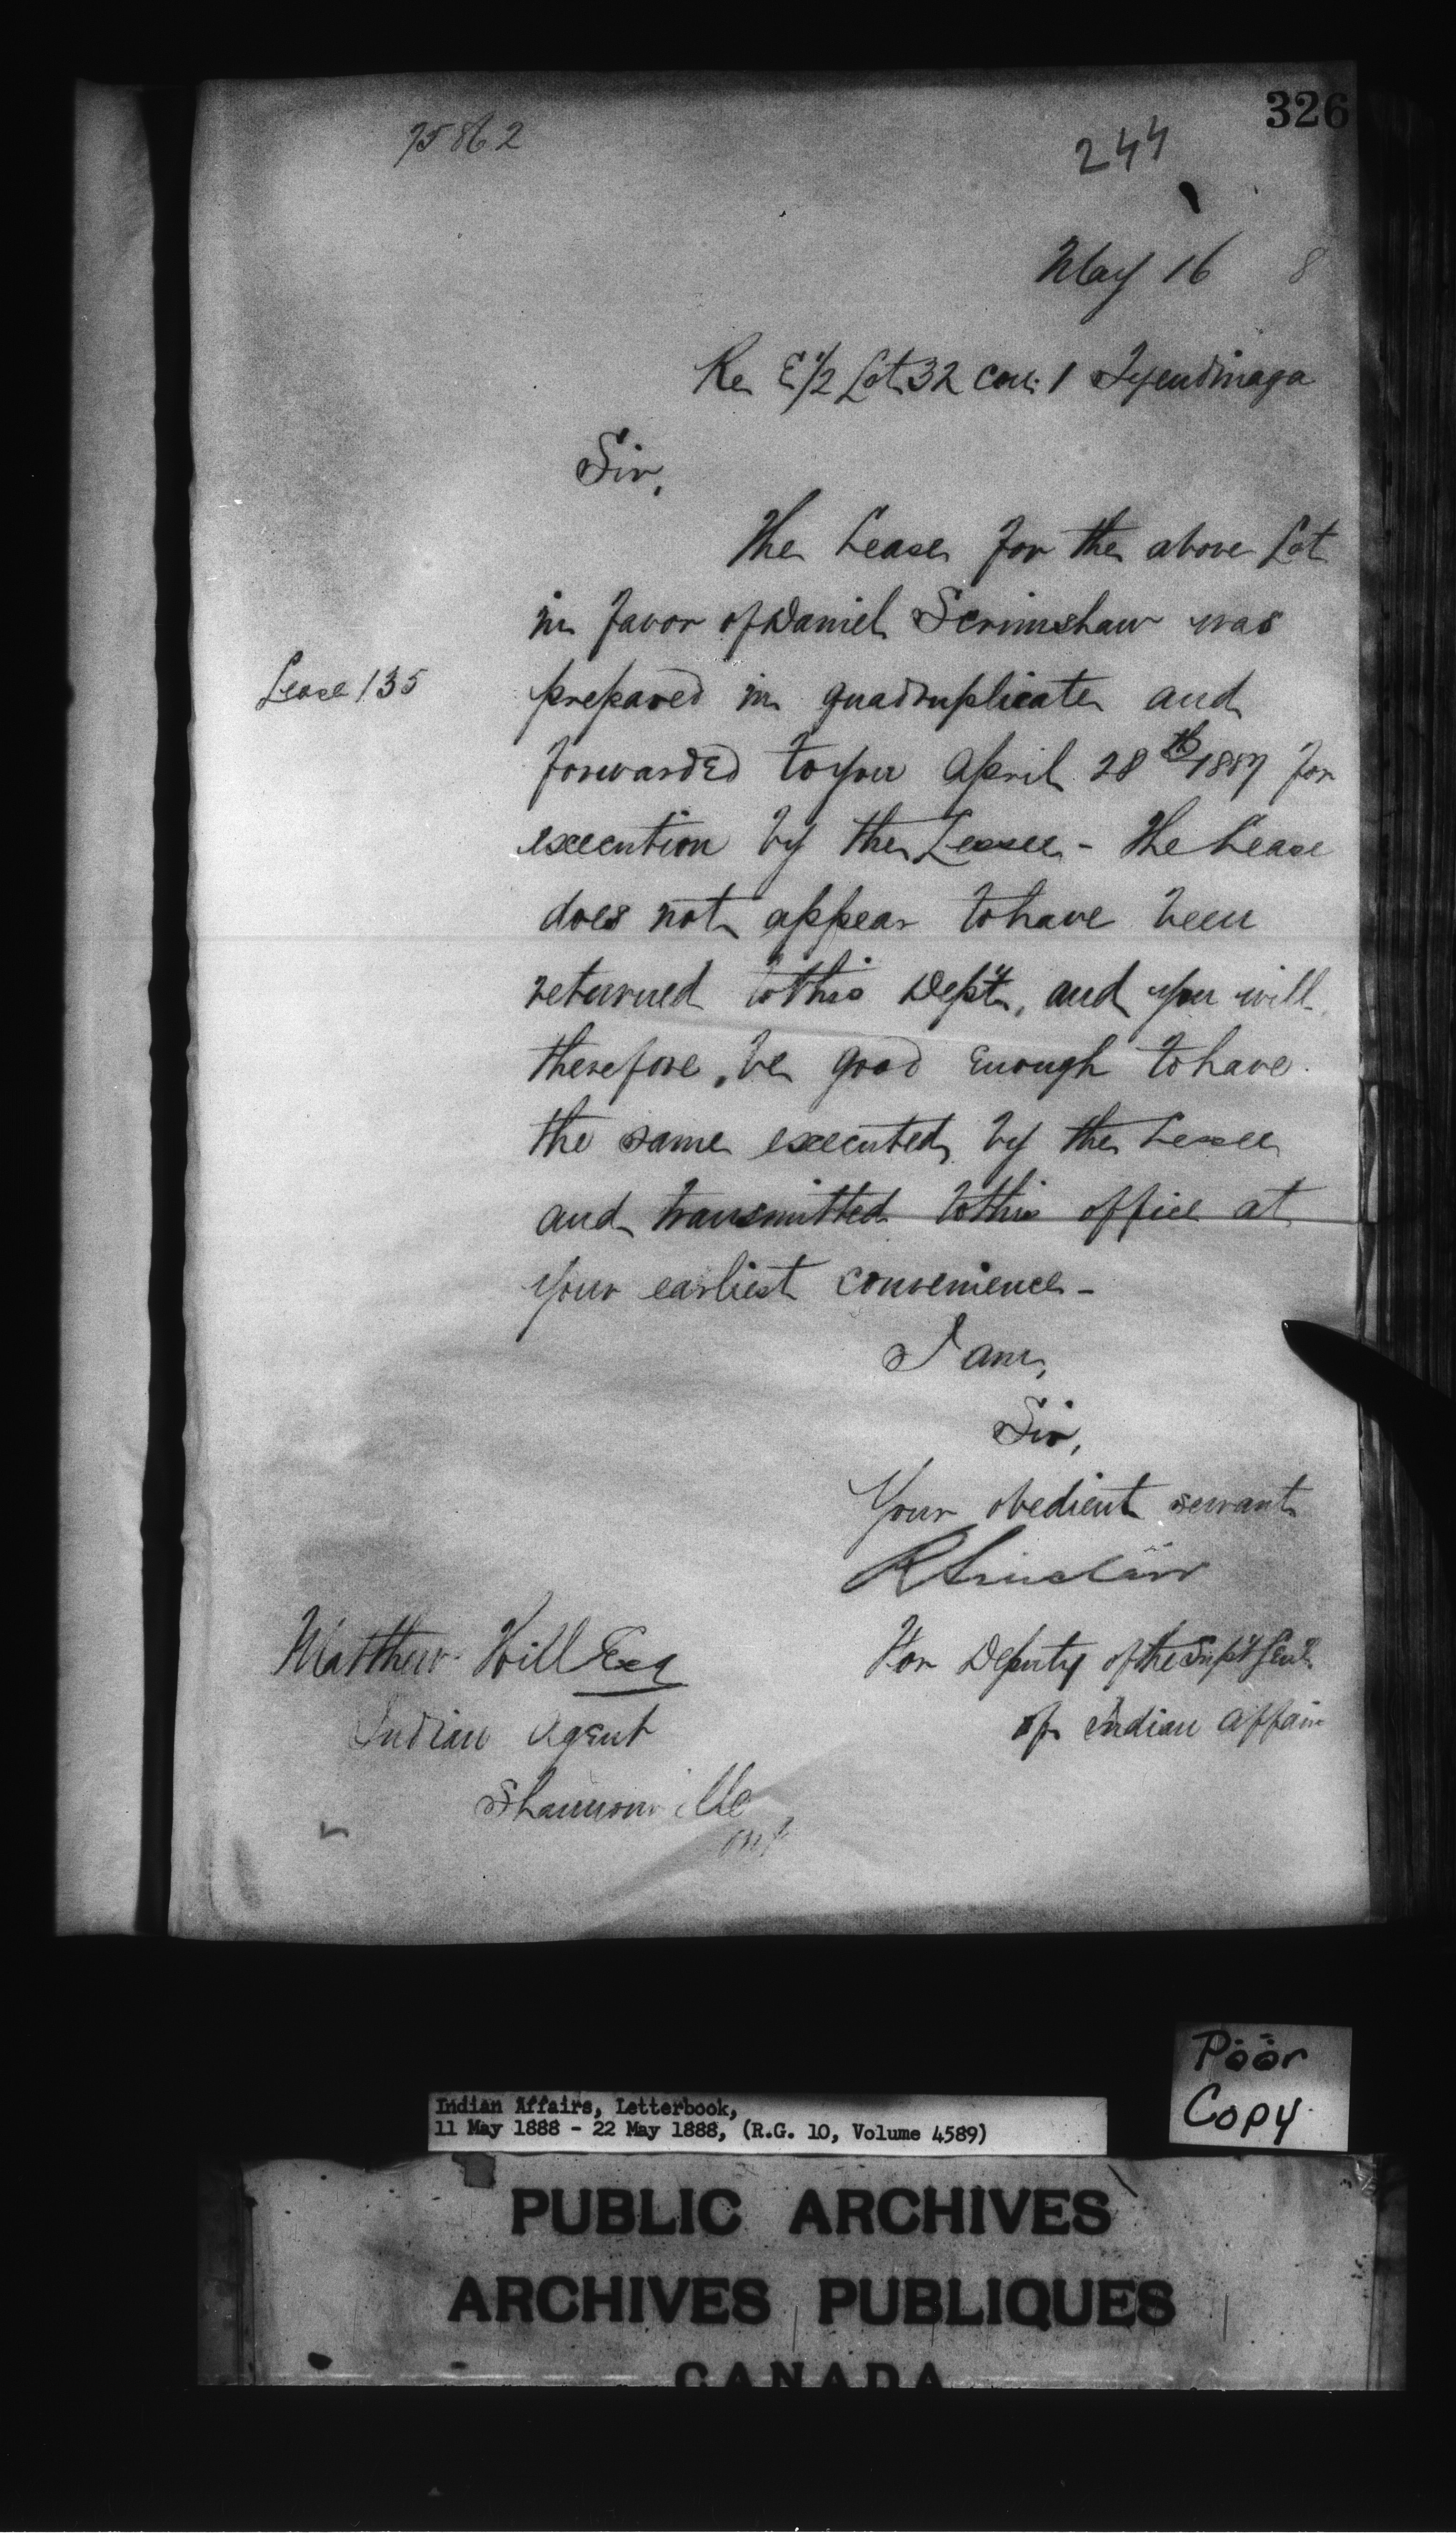 326
75862
244
May 16 8
Re E 1/2 Lot 32 con: 1 Tyendinaga
Sir,
The Lease for the above Lot
in favor of Daniel Scrimshaw was
Lease 135
prepared in quadruplicate and
forwarded to you April 28th 1887 for
execution by the Lessee - The Lease
does not appear to have been
returned to this Dep't, and you will
therefore, be good enough to have
the same executed by the Lessee
and transmitted to this office at
your earliest convenience -
I am,
Sir,
Your obedient servant
R Sinclair
For Deputy of the Sup't Gen'l
of Indian Affairs
Matthew Hill Esq
Indian Agent
Shannonville
Ont
Poor
Copy
Indian Affairs, Letterbook,
11 May 1888 - 22 May 1888, (R.G. 10, Volume 4589)
PUBLIC ARCHIVES
ARCHIVES PUBLIQUES
CANADA